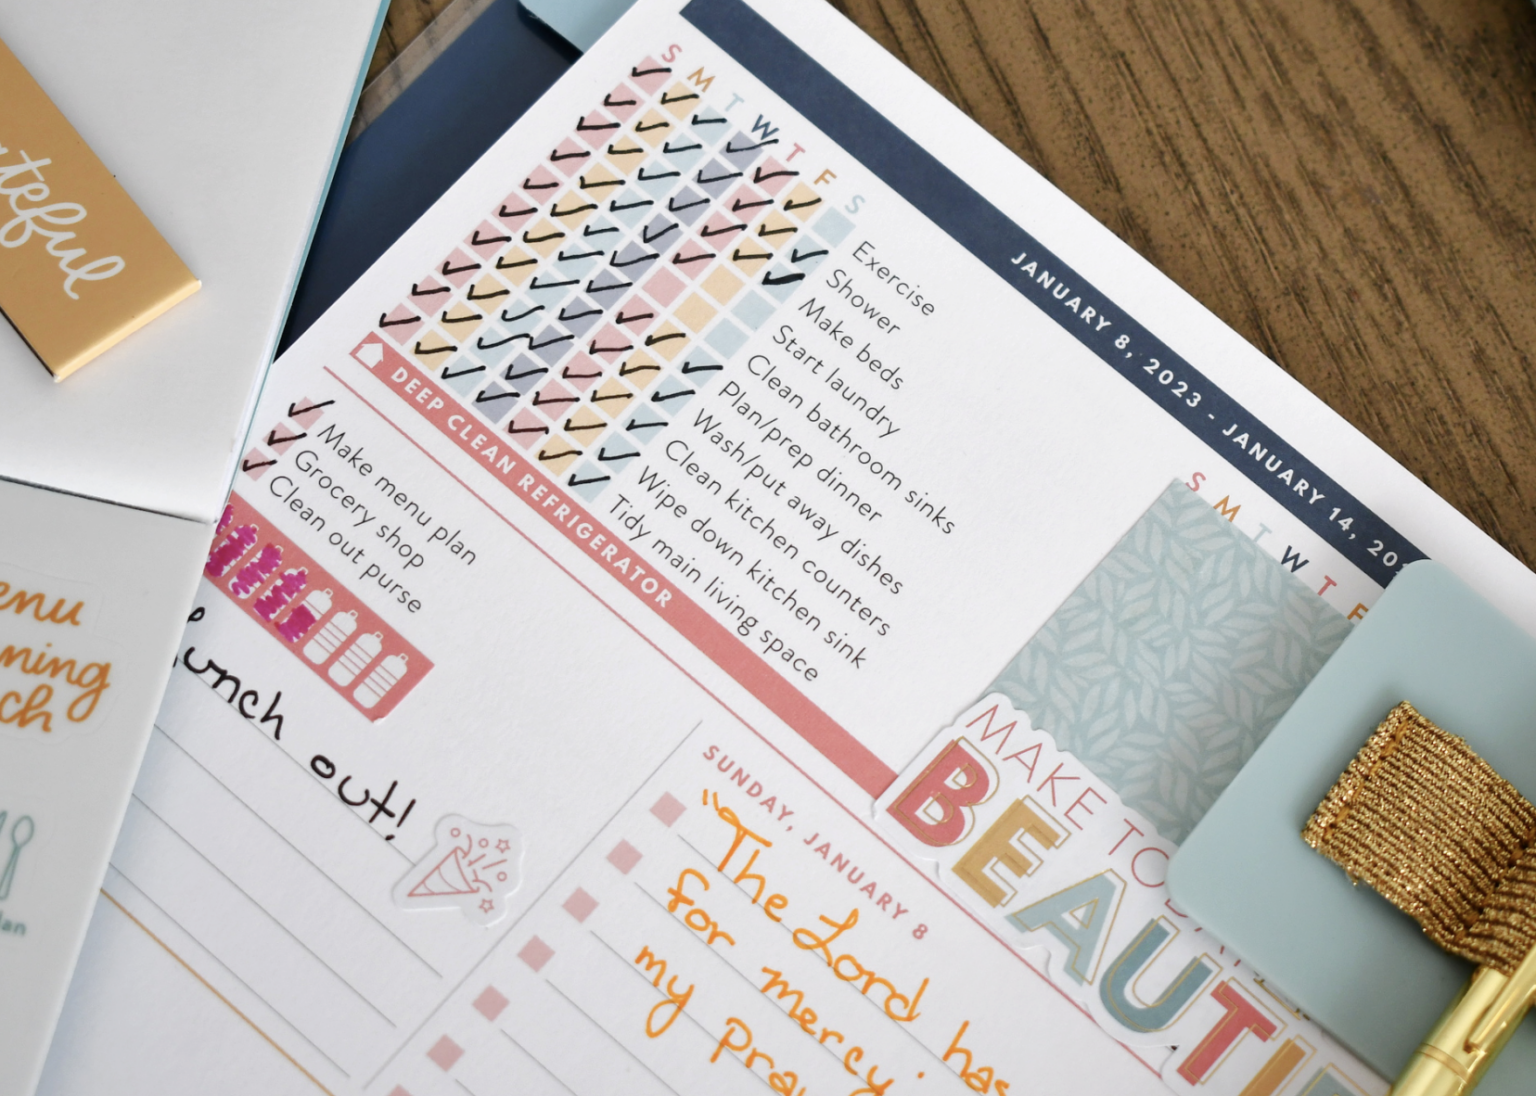 JANUARY 8, 2023 - JANUARY 14,
S M T W T F S
Exercise
Shower
Make beds
Start laundry
Clean bathroom sinks
Plan/prep dinner
Wash/put away dishes
Clean kitchen counters
Wipe down kitchen sink
Tidy main living space
DEEP CLEAN REFRIGERATOR
Make menu plan
Grocery shop
Clean out purse
Lunch out!
S M T W T F
MAKE
BEAUTI
SUNDAY, JANUARY 8
"The Lord has
for mercy;
my